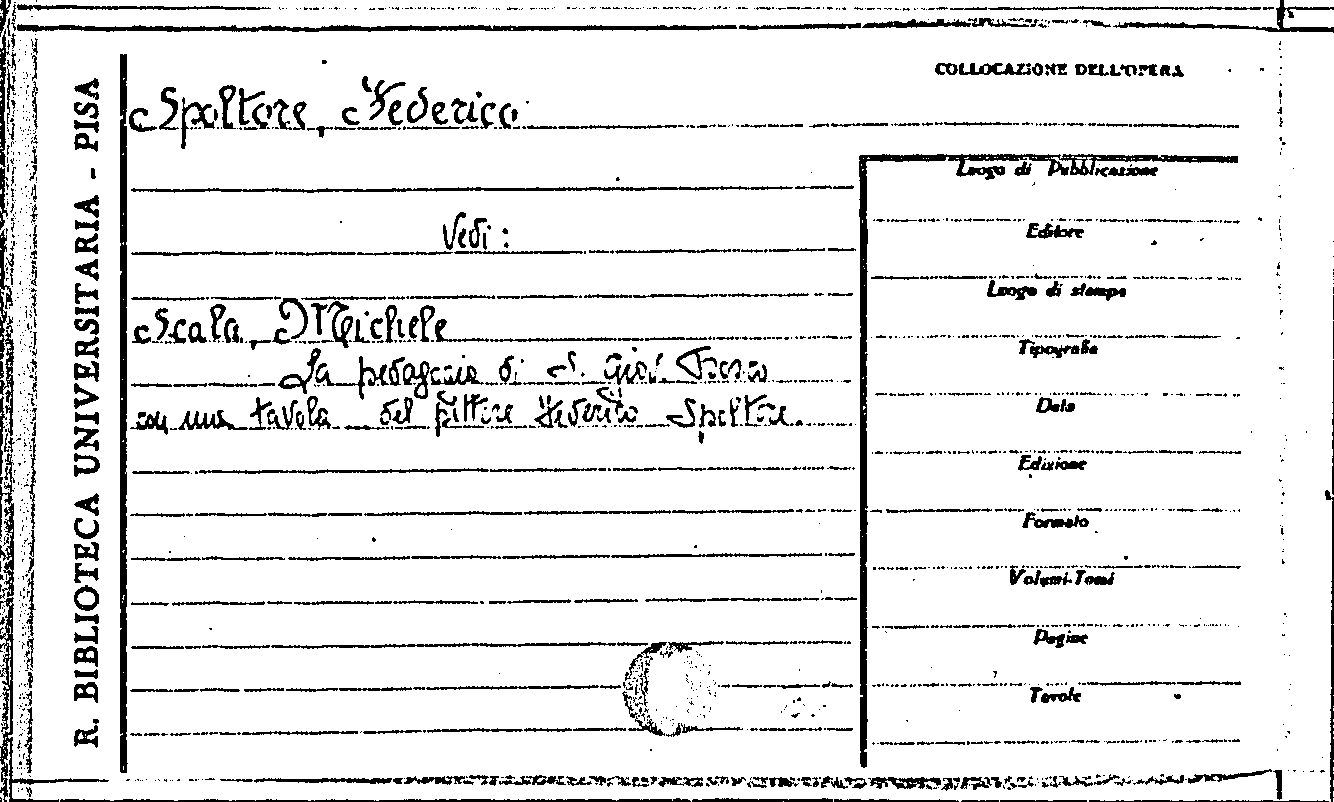 R. BIBLIOTECA UNIVERSITARIA - PISA
COLLOCAZIONE DELL'OPERA
Spoltore, Federico
Vedi:
Scala, Michele
La pedagogia di S. Giov. Bosco
con una tavola del pittore Federico Spoltore.
Luogo di Pubblicazione
Editore
Luogo di stampa
Tipografia
Data
Edizione
Formato
Volumi-Tomi
Pagine
Tavole